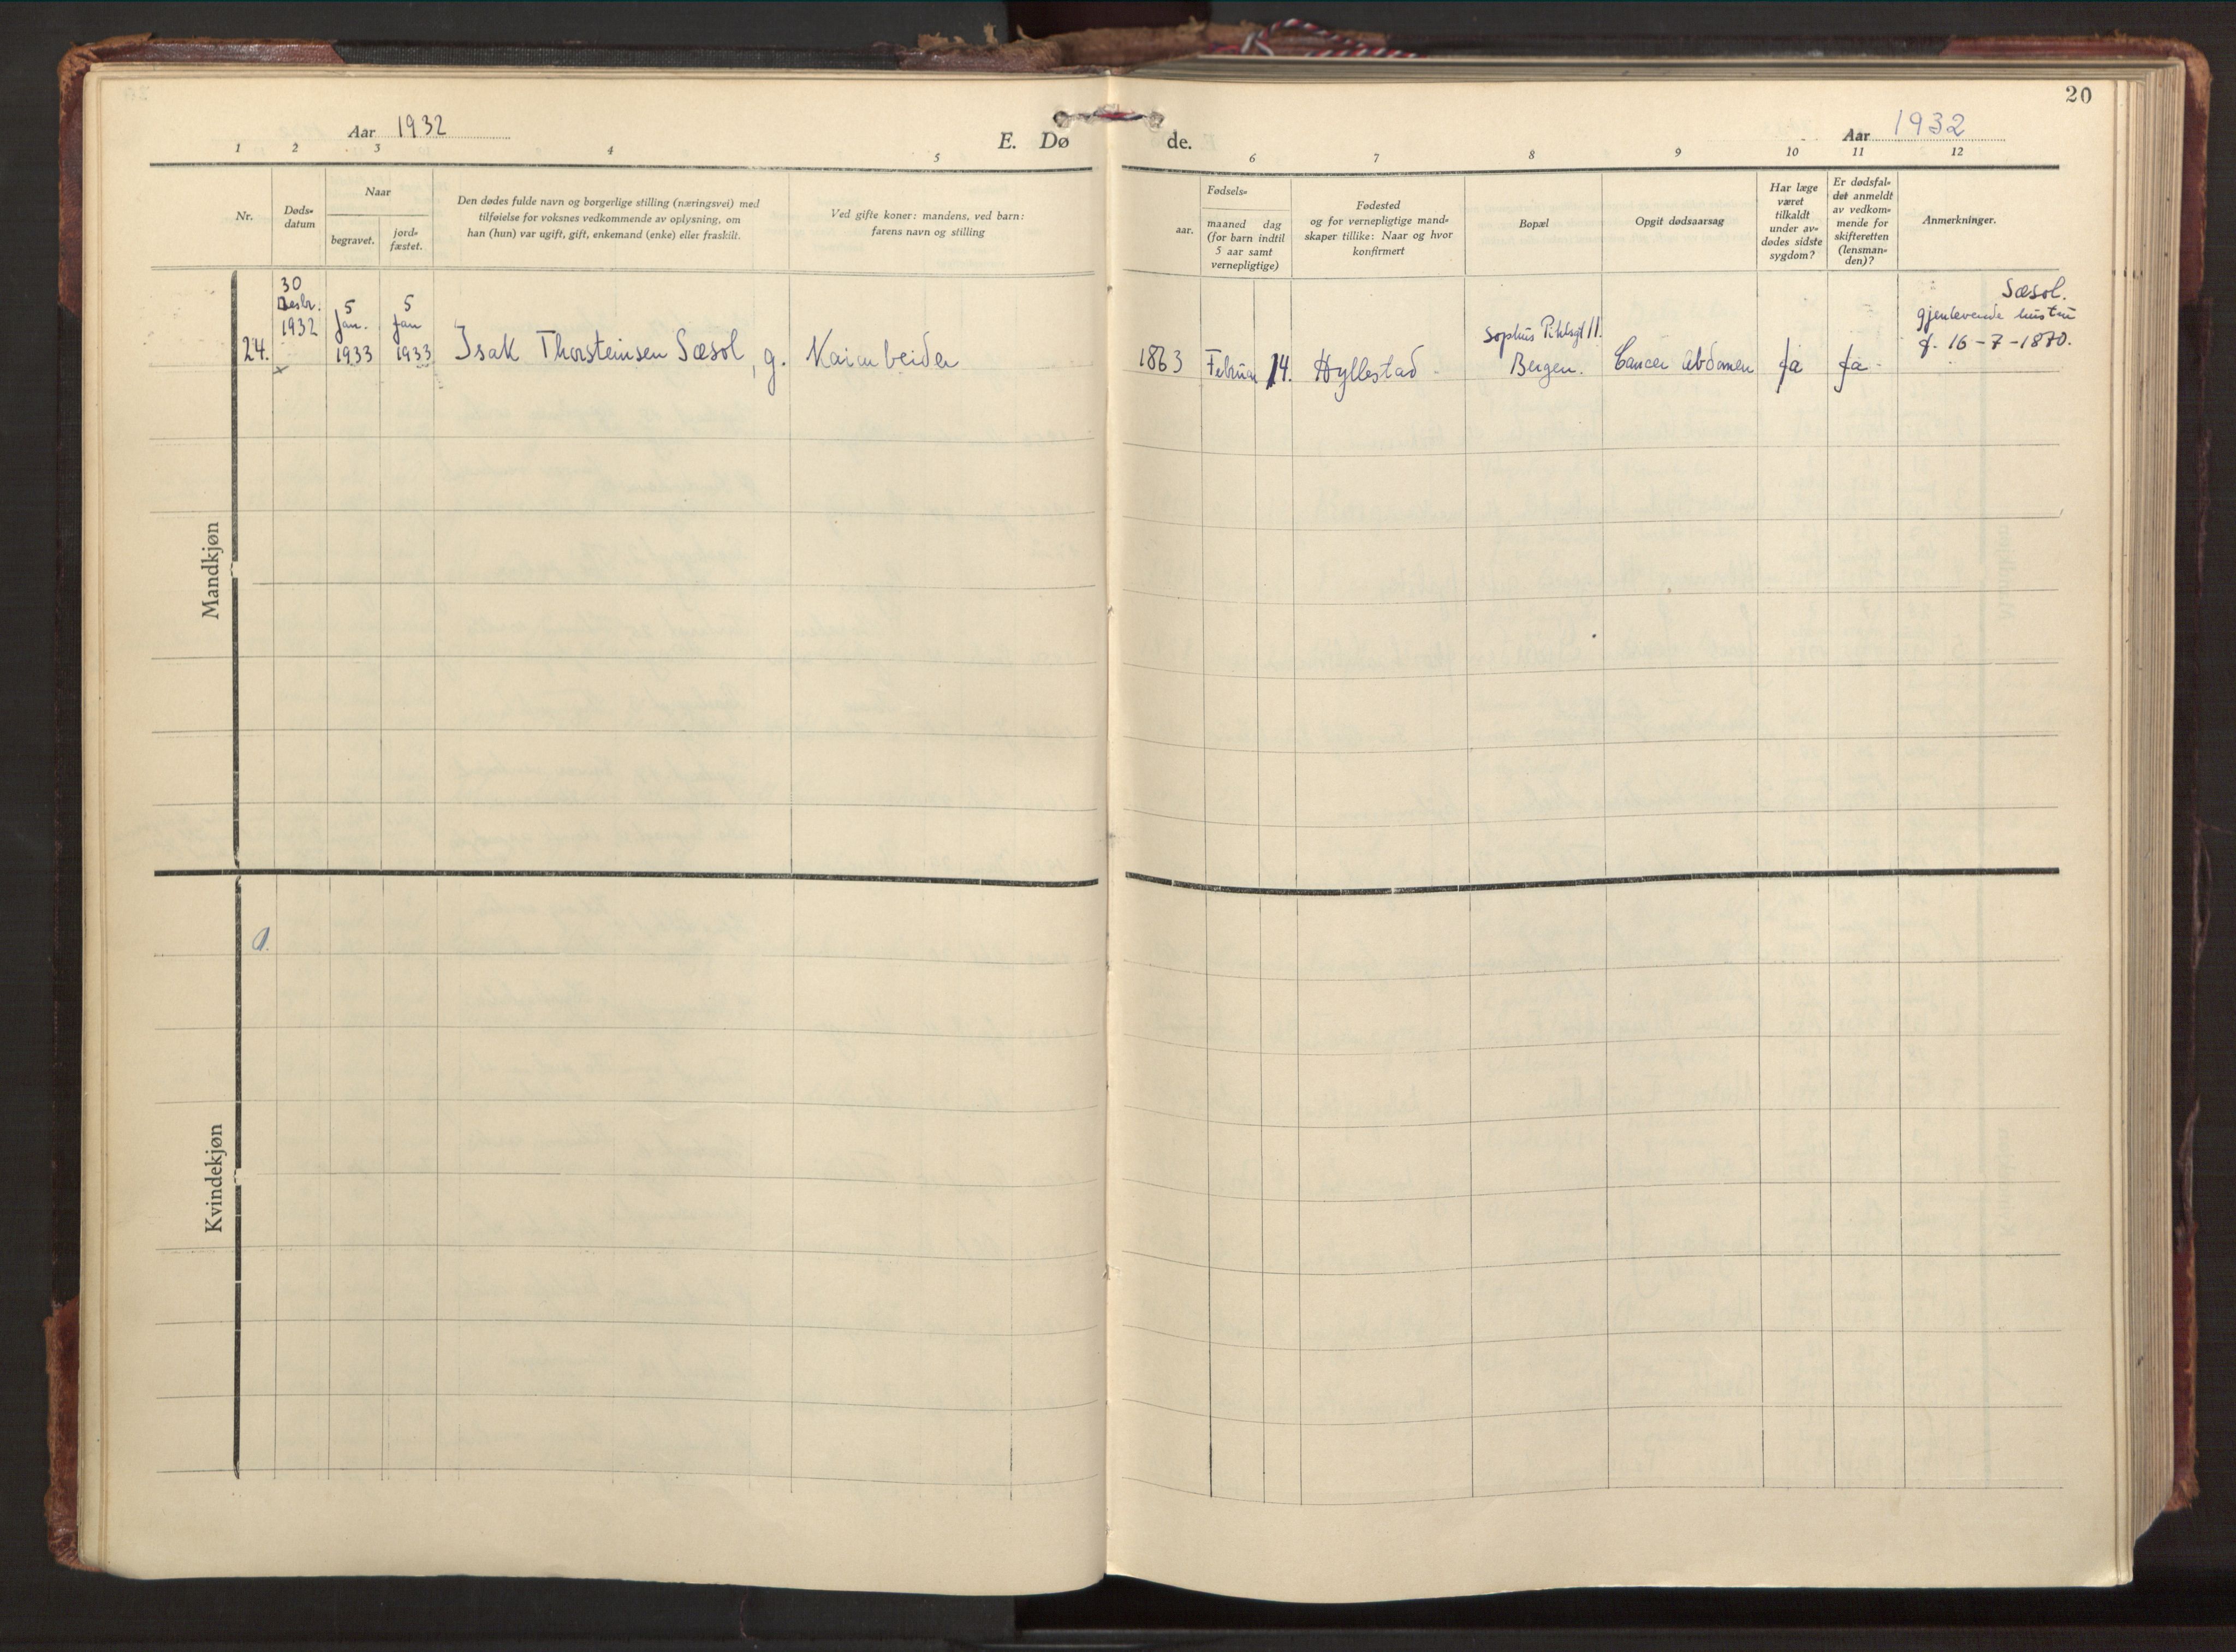 20
Aar 1932
E. Dø
de.
Aar 1932
1 2 3 4 5 6 7 8 9 10 11 12
Nr.
Døds-
datum
Naar
begravet.
jord-
fæstet.
Den dødes fulde navn og borgerlige stilling (næringsvei) med
tilføielse for voksnes vedkommende av oplysning, om
han (hun) var ugift, gift, enkemand (enke) eller fraskilt.
Ved gifte koner: mandens, ved barn:
farens navn og stilling
Fødsels-
aar.
maaned dag
(for barn indtil
5 aar samt
vernepligtige)
Fødested
og for vernepligtige mand-
skaper tillike: Naar og hvor
konfirmert
Bopæl
Opgit dødsaarsag
Har læge
været
tilkaldt
under av-
dødes sidste
sygdom?
Er dødsfal-
det anmeldt
av vedkom-
mende for
skifteretten
(lensman-
den)?
Anmerkninger.
Mandkjøn
24.
30
Desbr.
1932
5
Jan.
1933
5
Jan
1933
Isak Thorsteinsen Sæsol, g. Kaiarbeider
1863
Februar 14.
Hyllestad
Sophus Pihlsgt 11.
Bergen.
Cancer abdomen
Ja
Ja
Sæsol.
gjenlevende hustru
f. 16-7-1870.
Kvindekjøn